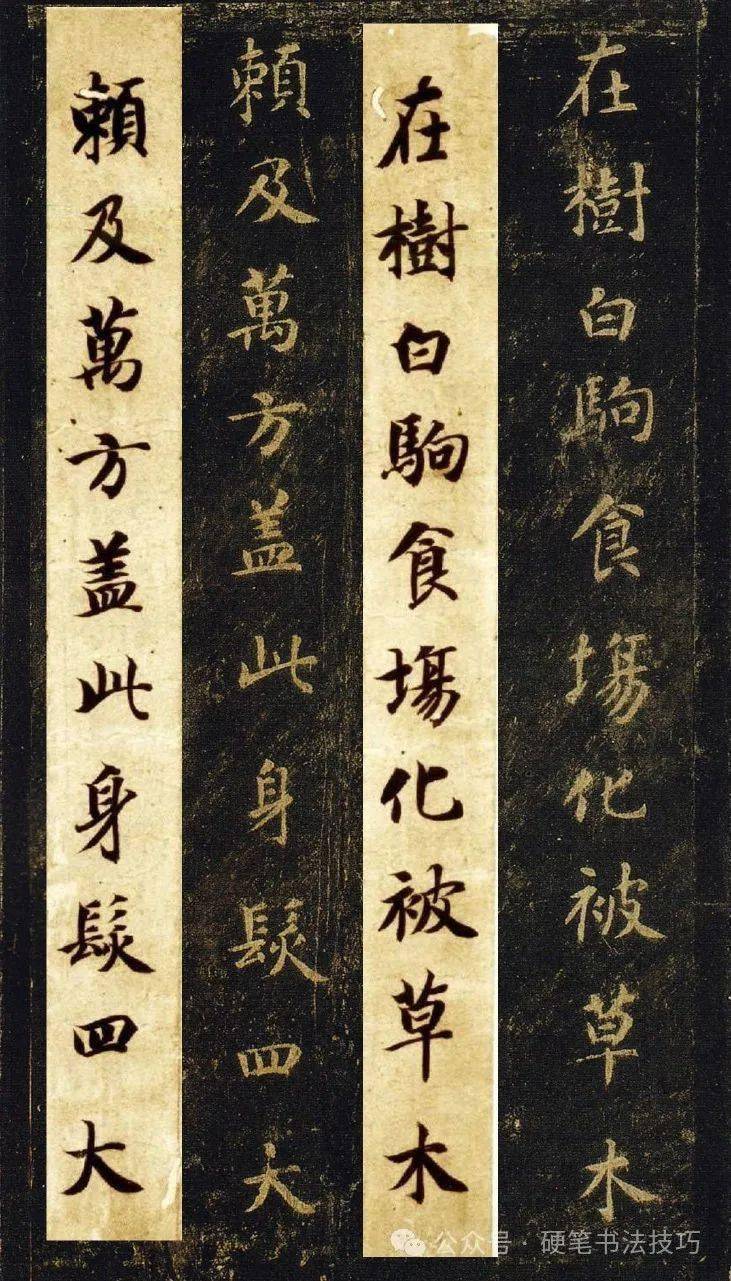 在樹白駒食場化被草木
在樹白駒食場化被草木
賴及萬方盖此身髮四大
賴及萬方盖此身髮四大
公众号·硬笔书法技巧